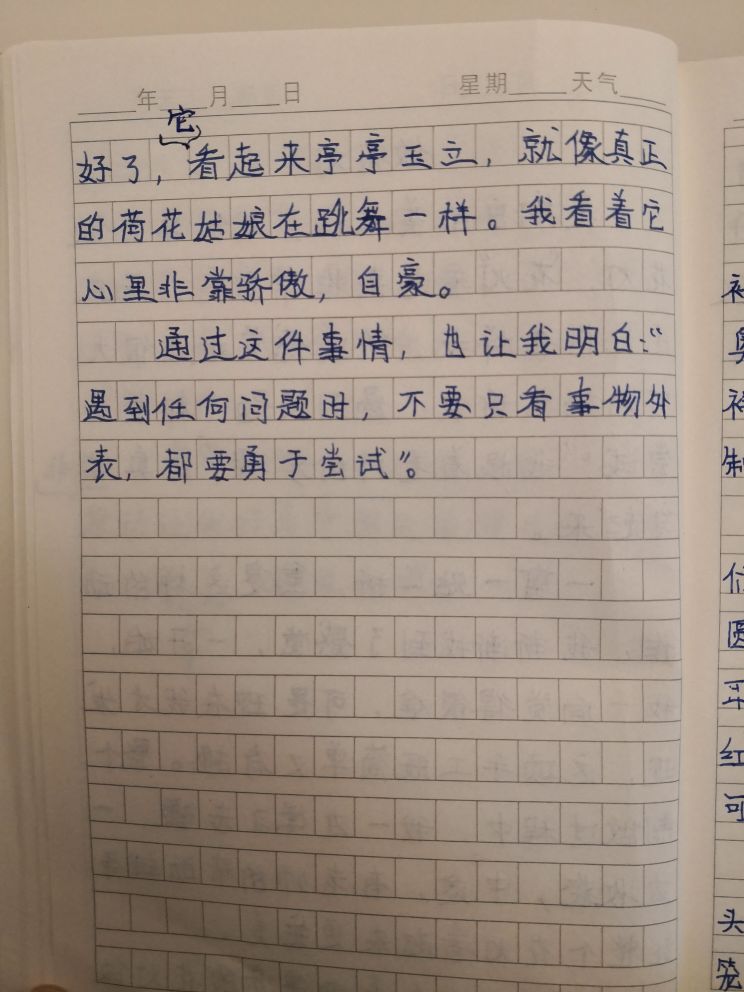 年 月 日 星期 天气
它
好了，看起来亭亭玉立，就像真正
的荷花姑娘在跳舞一样。我看着它
心里非常骄傲，自豪。
通过这件事情，也让我明白：“
遇到任何问题时，不要只看事物外
表，都要勇于尝试”。
衤
奥
制
位
圆
平
红
可
头
笼